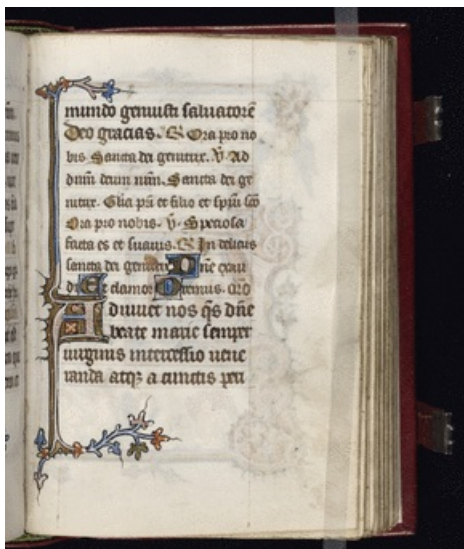 mundo genuisti saluatorē
Deo gracias. R̃ Ora pro no
bis Sancta dei genitrix. V̇ Ad
dnm̄ deum nrm̄. Sancta dei ge
nitrix. Glia pri̅ et filio et spiri
Ora pro nobis. V̇ Speciosa
facta es et suauis. R̃ In deliciis
sancta dei genitrix Dn̄e exau
di Et clamor Oremus.
Adiuuet nos qs̄ dn̄e
beate marie semper
uirginis intercessio uene
randa atqȝ a cunctis peri